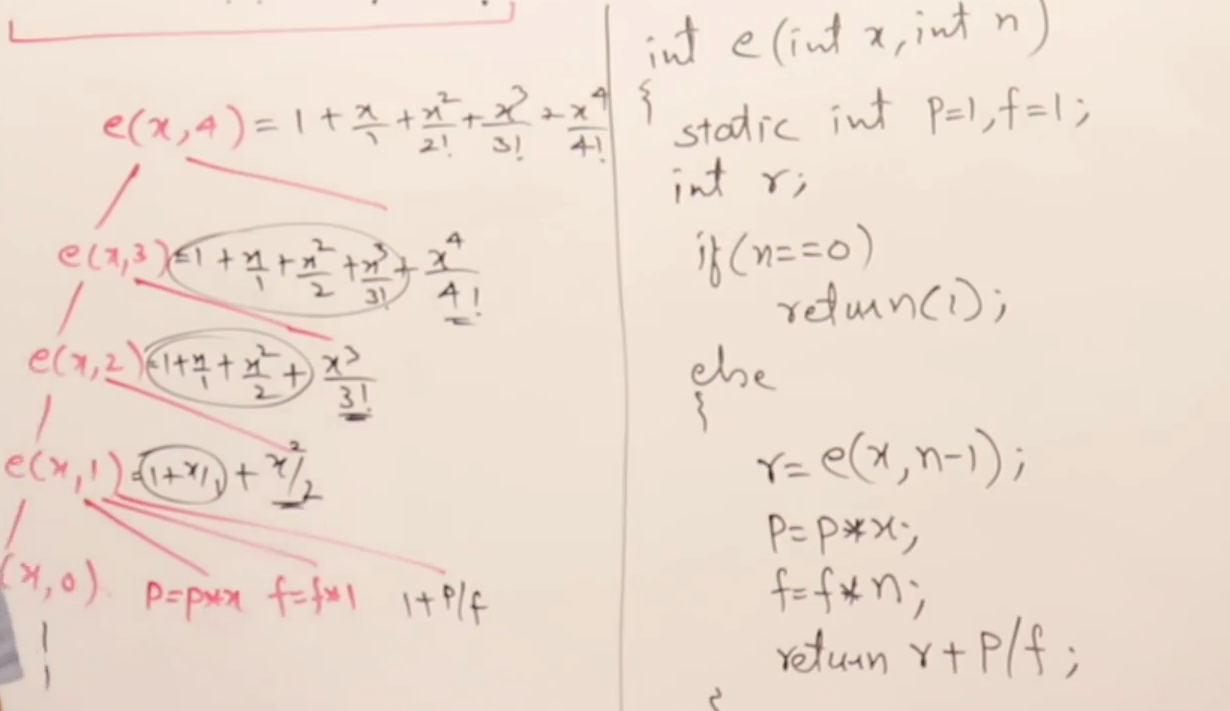 e(x,4) = 1 + x/1 + x²/2! + x³/3! + x⁴/4!
e(x,3) = 1 + x/1 + x²/2 + x³/3! + x⁴/4!
e(x,2) = 1 + x/1 + x²/2 + x³/3!
e(x,1) = 1 + x/1 + x²/2
(x,0) P=P*x f=f*1 1+P/f
1
int e(int x, int n)
{
static int P=1, f=1;
int r;
if(n==0)
return(1);
else
{
r= e(x,n-1);
P=P*x;
f=f*n;
return r+P/f;
}